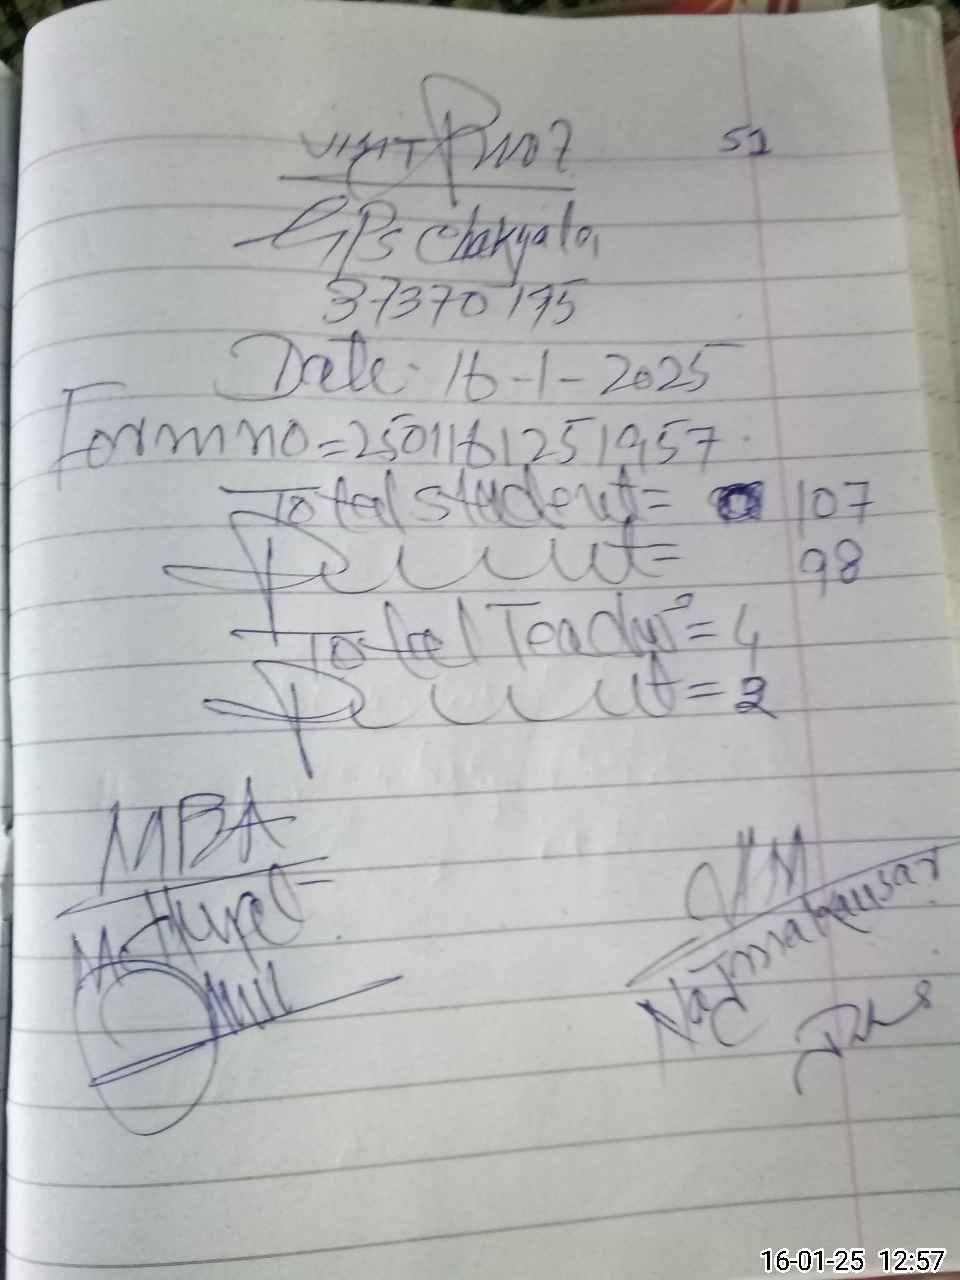 VISIT Proof 51
GPS Chakyala
37370195
Date: 16-1-2025
Form no = 2501161251957
Total student = 107
Present = 98
Total Teachers = 4
Present = 3
MBA
HM
Najma Kausar
16-01-25 12:57